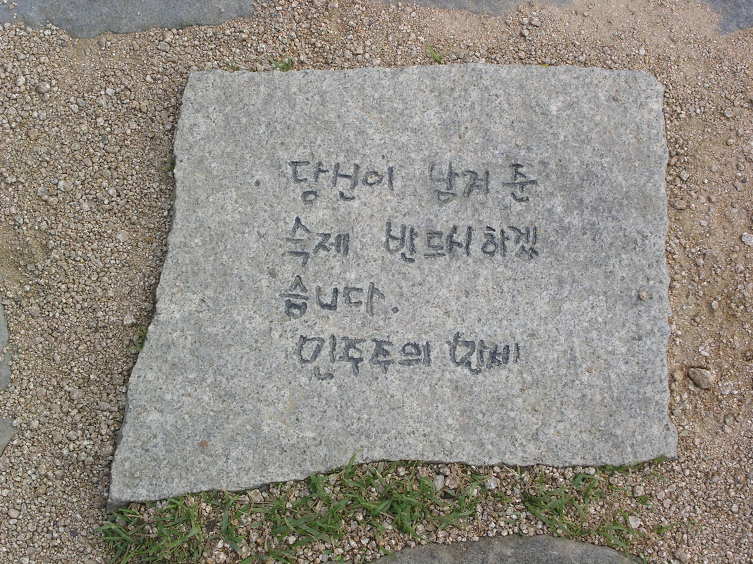 당신이 남겨 준
숙제 반드시하겠
습니다.
민주주의 만세